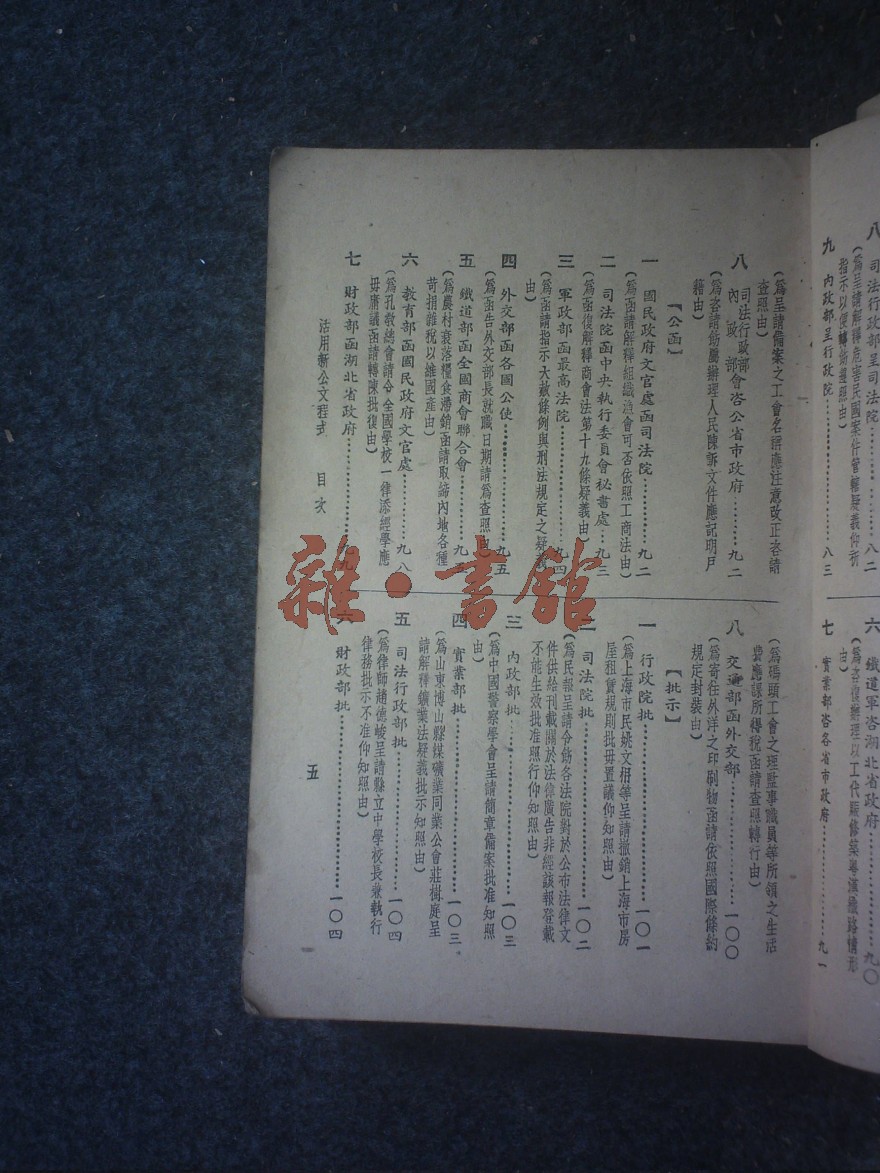 八 司法行政部呈司法院……八二
(為呈請解釋危害民國案件管轄疑義仰祈
指示以便轉飭遵照由)
九 內政部呈行政院……八三
六 鐵道軍咨湖北省政府……九〇
(為咨復辦理以工代賑修築粵漢鐵路情形
由)
七 實業部咨各省市政府……九一
(為呈請備案之工會名稱應注意改正咨請
查照由)
八 司法行政部
內政部會咨公省市政府……九二
(為咨請飭屬辦理人民陳訴文件應記明戶
籍由)
【公函】
一 國民政府文官處函司法院……九二
(為函請解釋組織漁會可否依照工商法由)
二 司法院函中央執行委員會祕書處…九三
(為函復解釋商會法第十九條疑義由)
三 軍政部函最高法院……九四
(為函請指示大赦條例與刑法規定之疑義
由)
四 外交部函各國公使……九五
(為函告外交部長就職日期請為查照由)
五 鐵道部函全國商會聯合會……九
(為農村衰落糧食滯銷函請取締內地各種
苛捐雜稅以維國產由)
六 教育部函國民政府文官處……九八
(為孔教總會請令全國學校一律添經學應
毋庸議函請轉陳批復由)
七 財政部函湖北省政府……九
(為碼頭工會之理監事職員等所領之生活
費應課所得稅函請查照轉行由)
八 交通部函外交部……一〇〇
(為寄往外洋之印刷物函請依照國際條約
規定封裝由)
【批示】
一 行政院批……一〇一
(為上海市民姚文枬等呈請撤銷上海市房
屋租賃規則批毋置議仰知照由)
二 司法院批……一〇二
(為民報呈請令飭各法院對於公布法律文
件供給刊載關於法律廣告非經該報登載
不能生效批准照行仰知照由)
三 內政部批……一〇三
(為中國警察學會呈請簡章備案批准知照
由)
四 實業部批……一〇三
(為山東博山縣煤礦業同業公會莊樹庭呈
請解釋鑛業法疑義批示知照由)
五 司法行政部批……一〇四
(為律師趙德峻呈請縣立中學校長兼執行
律務批示不准仰知照由)
六 財政部批……一〇四
活用新公文程式 目次 五
雜·書館